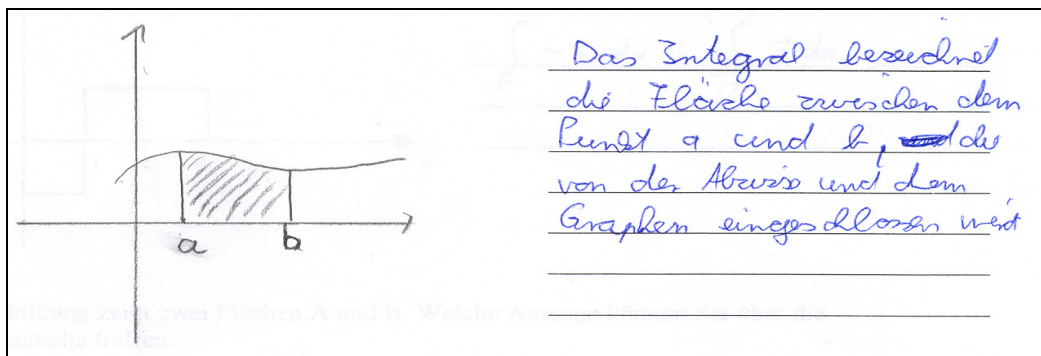 Das Integral bezeichnet
die Fläche zwischen dem
Punkt a und b, die
von der Abzisse und dem
Graphen eingeschlossen wird
a
b
bildung zeigt zwei Flächen A und B. Welche Aussage können Sie über die